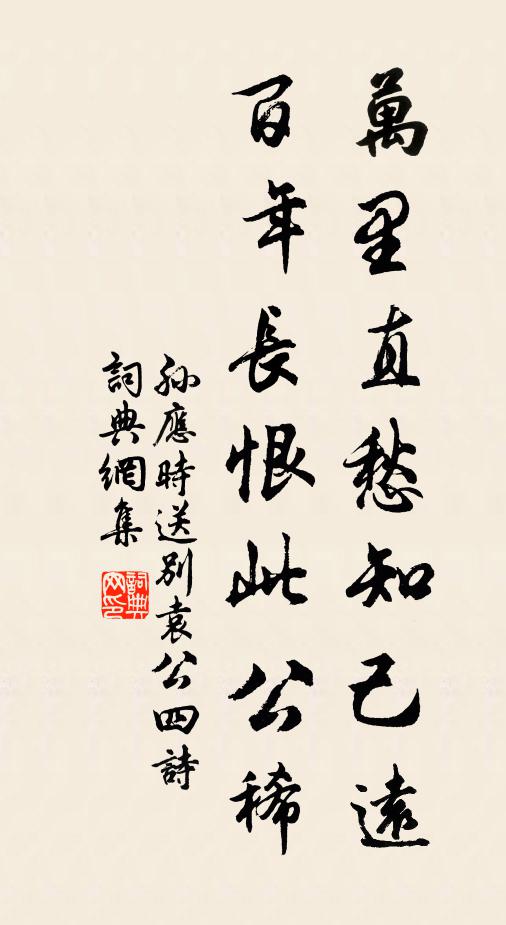 萬里直愁知己遠
百年長恨此公稀
孫應時送別袁公四詩
詞典網集
詞典网印